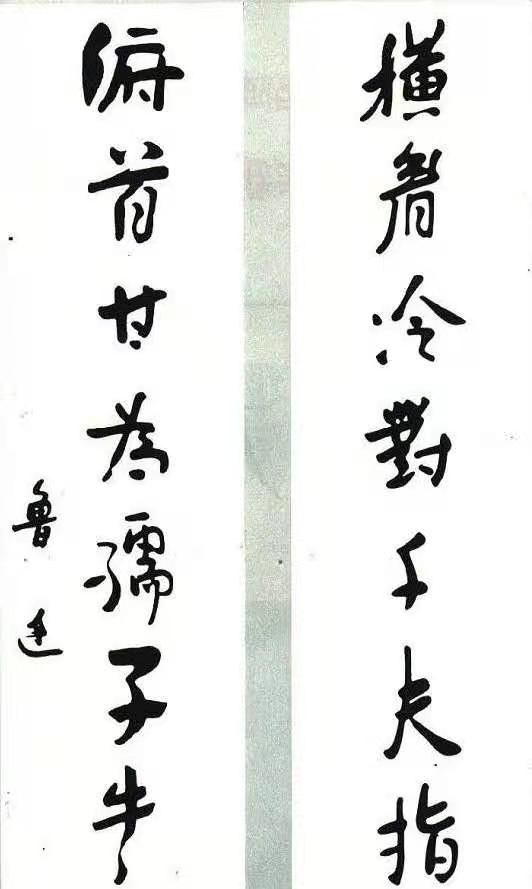 橫眉冷對千夫指
俯首甘為孺子牛
魯迅